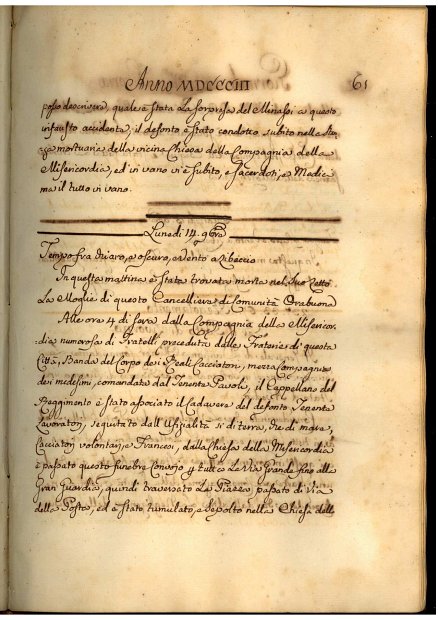 Anno MDCCCIII
61
posso descrivere, quale è stata la sorpresa del Minassi a questo
infausto accidente, il defonto è stato condotto subito nella stan-
za mortuaria della vicina Chiesa della Compagnia della
Misericordia, ed in vano vi è subito, e sacerdoti, e Medici
ma il tutto in vano.
Lunedì 14. 9bre
Tempo fra chiaro, e oscuro, e vento a libeccio
In questa mattina è stata trovata morta nel suo letto
la Moglie di questo Cancelliere di Comunità Orabuona
Alle ore 4 di sera dalla Compagnia della Misericor-
dia numerosa di Fratelli preceduta dalle Fraterie di questa
Città, Banda del Corpo dei Reali Cacciatori, mezza Compagnia
dei medesimi, comandata dal Tenente Pavolo, il Cappellano del
Reggimento è stato associato il Cadavere del defonto Tenente
Lavoratori, seguitato dall Ufizialità sì di terra, che di mare,
Cacciatori volontarj e Francesi, dalla Chiesa della Misericordia
è passato questo funebre Convojo p tutta la Via grande fino alla
Gran Guardia, quindi traversato la Piazza, passato di Via
della Posta, ed è stato tumulato, e sepolto nella Chiesa della